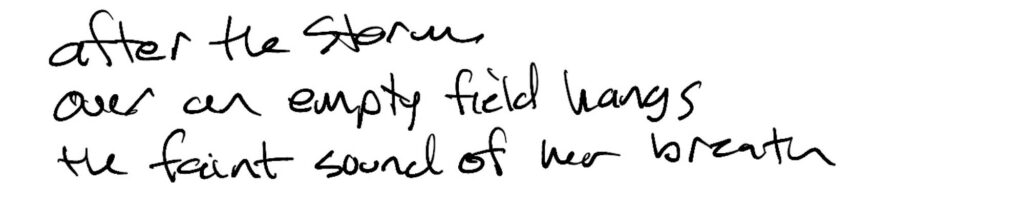 after the storm
over an empty field hangs
the faint sound of her breath